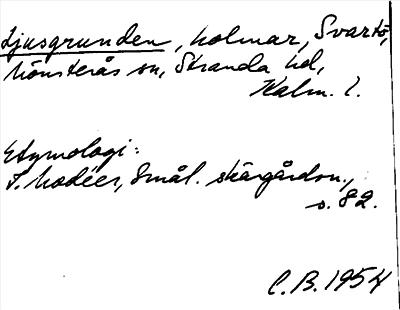 Ljusgrunden, holmar, Svartö,
Mönsterås sn, Stranda hd,
Kalm. l.
Etymologi:
T. Modéer, Smål. skärgårdsn.,
s. 82.
C.B. 1954